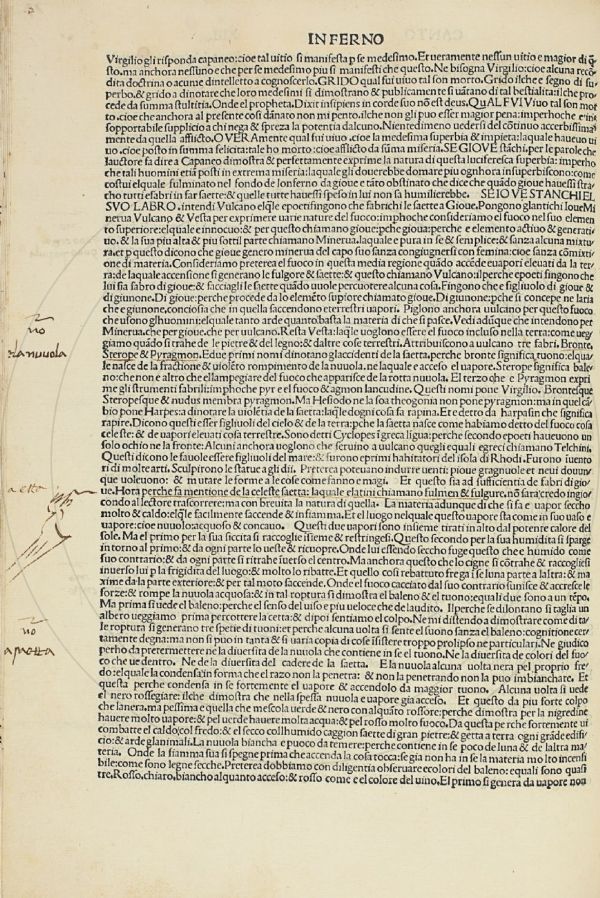 INFERNO
Virgilio gli risponda capaneo:cioe tal uitio si manifesta p se medesimo. Et ueramente nessun uitio e magior di q̃
sto.ma anchora nessũno e che per se medesimo piu si manifesti che questo. Ne bisogna Virgilio:cioe alcuna reco
dita doctrina o acume dintellecto a cognoscerlo. GRIDO qual fui uiuo tal son morto. Grido ilche e segno di su
perbo.& grido a dinotare che loro medesimi si dimostrano & publicamente si uãtano di tal bestialita:ilche pro
cede da summa stultitia. Onde el propheta. Dixit insipiens in corde suo nõ est deus. QuALFVI Viuo tal son mor
to.cioe che anchora al presente cosi dãnato non mi pento.ilche non gli puo esser magior pena:imperhoche e in
sopportabile supplicio a chi nega & spreza la potentia dalcuno. Nientedimeno uedersi del cõtinuo accerbissima
mente da quella afflicto. OVERAmente qual fui uiuo .cioe la medesima superbia & impieta:laquale haueuo ui
uo.cioe posto in summa felicita:tale ho morto:cioe afflicto da sũma miseria. SE GIOVE stãchi.per le parole che
lauctore fa dire a Capaneo dimostra & perfectamente exprime la natura di questa luciferesca superbia: imperho
che tali huomini etiã posti in extrema miseria:laquale gli douerebbe domare piu ognhora insuperbiscono:come
costui elquale fulminato nel fondo de lonferno da gioue e tãto obstinato che dice che quãdo gioue hauessi strac
cho tutti e fabri in far saette:& quelle tutte hauessi speso in lui non sa humilierebbe. SE IOVE STANCHI EL
SVO LABRO. intendi Vulcano elq̃le epoeti fingono che fabrichi le saette a Gioue. Pongono glantichi Ioue Mi
nerua Vulcano & Vesta per exprimere uarie nature del fuoco:impheoche consideriamo el fuoco nel suo elemen
to superiore:elquale e innocuo:& per questo chiamano gioue:pche gioua:perche e elemento actiuo & generati
uo.& la sua piu alta & piu sottil parte chiamano Minerua.laquale e pura in se & semplice:& sanza alcuna mixtu
ra.et p questo dicono che gioue genero minerua del capo suo sanza congiugnersi con femina:cioe sanza cõmixti
one di materia. Consideriamo preterea el fuoco in questa media regione quãdo accẽde euapori eleuati da la ter
ra:de laquale accensione si generano le fulgore & saette:& questo chiamano Vulcano:ilperche epoeti fingono che
lui sia fabro di gioue:& facciagli le saette quãdo uuole percuotere alcuna cosa. Fingono che e figliuolo di gioue &
di giunone. Di gioue:perche procede da lo elemẽto supiore chiamato gioue. Di giunone:pche si concepe ne laria
che e giunone, conciosia che in quella saccendono eterrestri uapori. Piglono anchora vulcano per questo fuoco
che usono glhuomini:elquale tanto arde quanto basta la materia di che si pasce. Vedi adũque che intendono per
Minerua.che per gioue.che per uulcano. Resta Vesta:laq̃le uoglono essere el fuoco incluso nella terra:come ueg
giamo quãdo si trahe de le pietre & del legno:& daltre cose terrestri. Attribuiscono a uulcano tre fabri. Bronte,
Sterope & Pyragmon. E due primi nomi dinotano glaccidenti de la saetta.perche bronte significa tuono:elqua
le nasce de la fractione & uiolẽto rompimento de la nuuola.ne laquale e acceso el uapore. Sterope significa bale
no:che non e altro che ellampegiare del fuoco che apparisce de la rotta nuuola. El terzo che e Pyragmon expri
me gli strumenti fabrili:imphoche pyr e el fuoco & agmon lancudine. Questi nomi pone Virgilio. Brontesque
Steropesque & nudus membra pyragmon. Ma Hesiodo ne la sua theogonia non pone pyragmon:ma in quel cã
bio pone Harpes:a dinotare la uiolẽtia de la saetta:laq̃le dogni cosa fa rapina. Et e detto da harpasin che significa
rapire. Dicono questi esser figliuoli del cielo & de la terra:pche la saetta nasce come habiamo detto del fuoco cosa
celeste:& de uapori eleuati cosa terrestre. Sono detti Cyclopes i greca ligua:perche secondo epoeti haueuono un
solo ochio ne la fronte. Alcuni anchora uoglono che seruino a uulcano quegli equali egreci chiamano Telchini.
Questi dicono le fauole essere figliuoli del mare:& furono eprimi habitatori de lisola di Rhodi. Furono iuento
ri di molte arti. Sculpirono le statue a gli dii. Preterea poteano indurre uenti: pioue gragnuole et neui douun
que uoleuono: & mutare le forme a le cose come fanno e magi. Et questo sia ad sufficientia de fabri di gio
ue. Hora perche fa mentione de la celeste saetta: laquale elatini chiamano fulmen & fulgure.nõ sara credo ingio
condo al lectore trascorrere:ma con breuita la natura di quella. La materia adunque di che si fa e uapor seccho
molto & caldo:elq̃le facilmente saccende & infiamma. Et el luogo nelquale questo uapore sta come in suo uaso e
uapore:cioe nuuolo:acquoso & concauo. Questi due uapori sono insieme tirati in alto dal potente calore del
sole. Ma el primo per la sua siccita si raccoglie insieme & restringesi. Questo secondo per la sua humidita si sparge
in torno al primo:& da ogni parte lo ueste & ricuopre. Onde lui essendo seccho fuge questo che e humido come
suo contrario:& da ogni parte si ritrahe fuerso el centro. Ma anchora questo che lo cigne si cõtrahe & raccogliesi
inuerso lui p la frigidita del luogo:& molto lo ribatte. Et quello cosi rebattuto frega se lune parte a laltra:& ma
xime da la parte exteriore:& per tal moto saccende. Onde el fuoco cacciato dal suo contrario iunisce & accresce le
forze:& rompe la nuuola acquosa:& in tal roptura si dimostra el baleno & el tuono:equali due sono a un tẽpo.
Ma prima si uede el baleno:perche el senso del uiso e piu ueloce che delaudito. Ilperche se dilontano si taglia un
albero ueggiamo prima percotere la cetta: & dipoi sentiamo el colpo. Ne mi distendo a dimostrare come di ta
le roptura si generano tre spetie di tuoni:et perche alcuna uolta si sente el suono sanza el baleno:cognitione cer
tamente degna:ma non si puo in tanta & si uaria copia di cose isistere troppo prolipso ne particulari. Ne giudico
perho da pretermettere ne la diuersita de la nuuola che contiene in se el tuono. Ne la diuersita de colori del fuo
co che ue dentro. Ne de la diuersita del cadere de la saetta. E la nuuola alcuna uolta nera pel proprio fre
do:elquale la condensa in forma che el razo non la penetra: & non la penetrando non la puo imbianchare. Et
questa perche condensa in se fortemente il uapore & accendolo da maggior tuono. Alcuna uolta si uede
el nero rossegiare: ilche dimostra che nella spessa nuuola e uapore gia acceso. Et questo da piu forte colpo
che lanera.ma pessima e quella che mescola uerde & nero con alquãto rossore:perche dimostra per la nigredine
hauere molto uapore:& pel uerde hauere molta acqua:& pel rosso molto fuoco. Da questa perche fortemente ui
combatte el caldo:col fredo:& el secco collhumido caggion saette di gran pietre:& getta a terra ogni grãde edifi
cio:& arde glanimali. La nuuola biancha e puoco da temere:perche contiene in se poco de luna & de laltra ma
teria. Onde la fiamma sua si spegne prima che accenda la cosa tocca:se gia non ha in se la materia molto incensi
bile:come sono legne secche. Preterea dobbiamo con diligentia obseruare ecolori del baleno: equali sono quasi
tre. Rosso, chiaro, biancho alquanto acceso:& rosso come e el colore del uino. El primo si genera da uapore non
nõ
ela nuuola
nõ